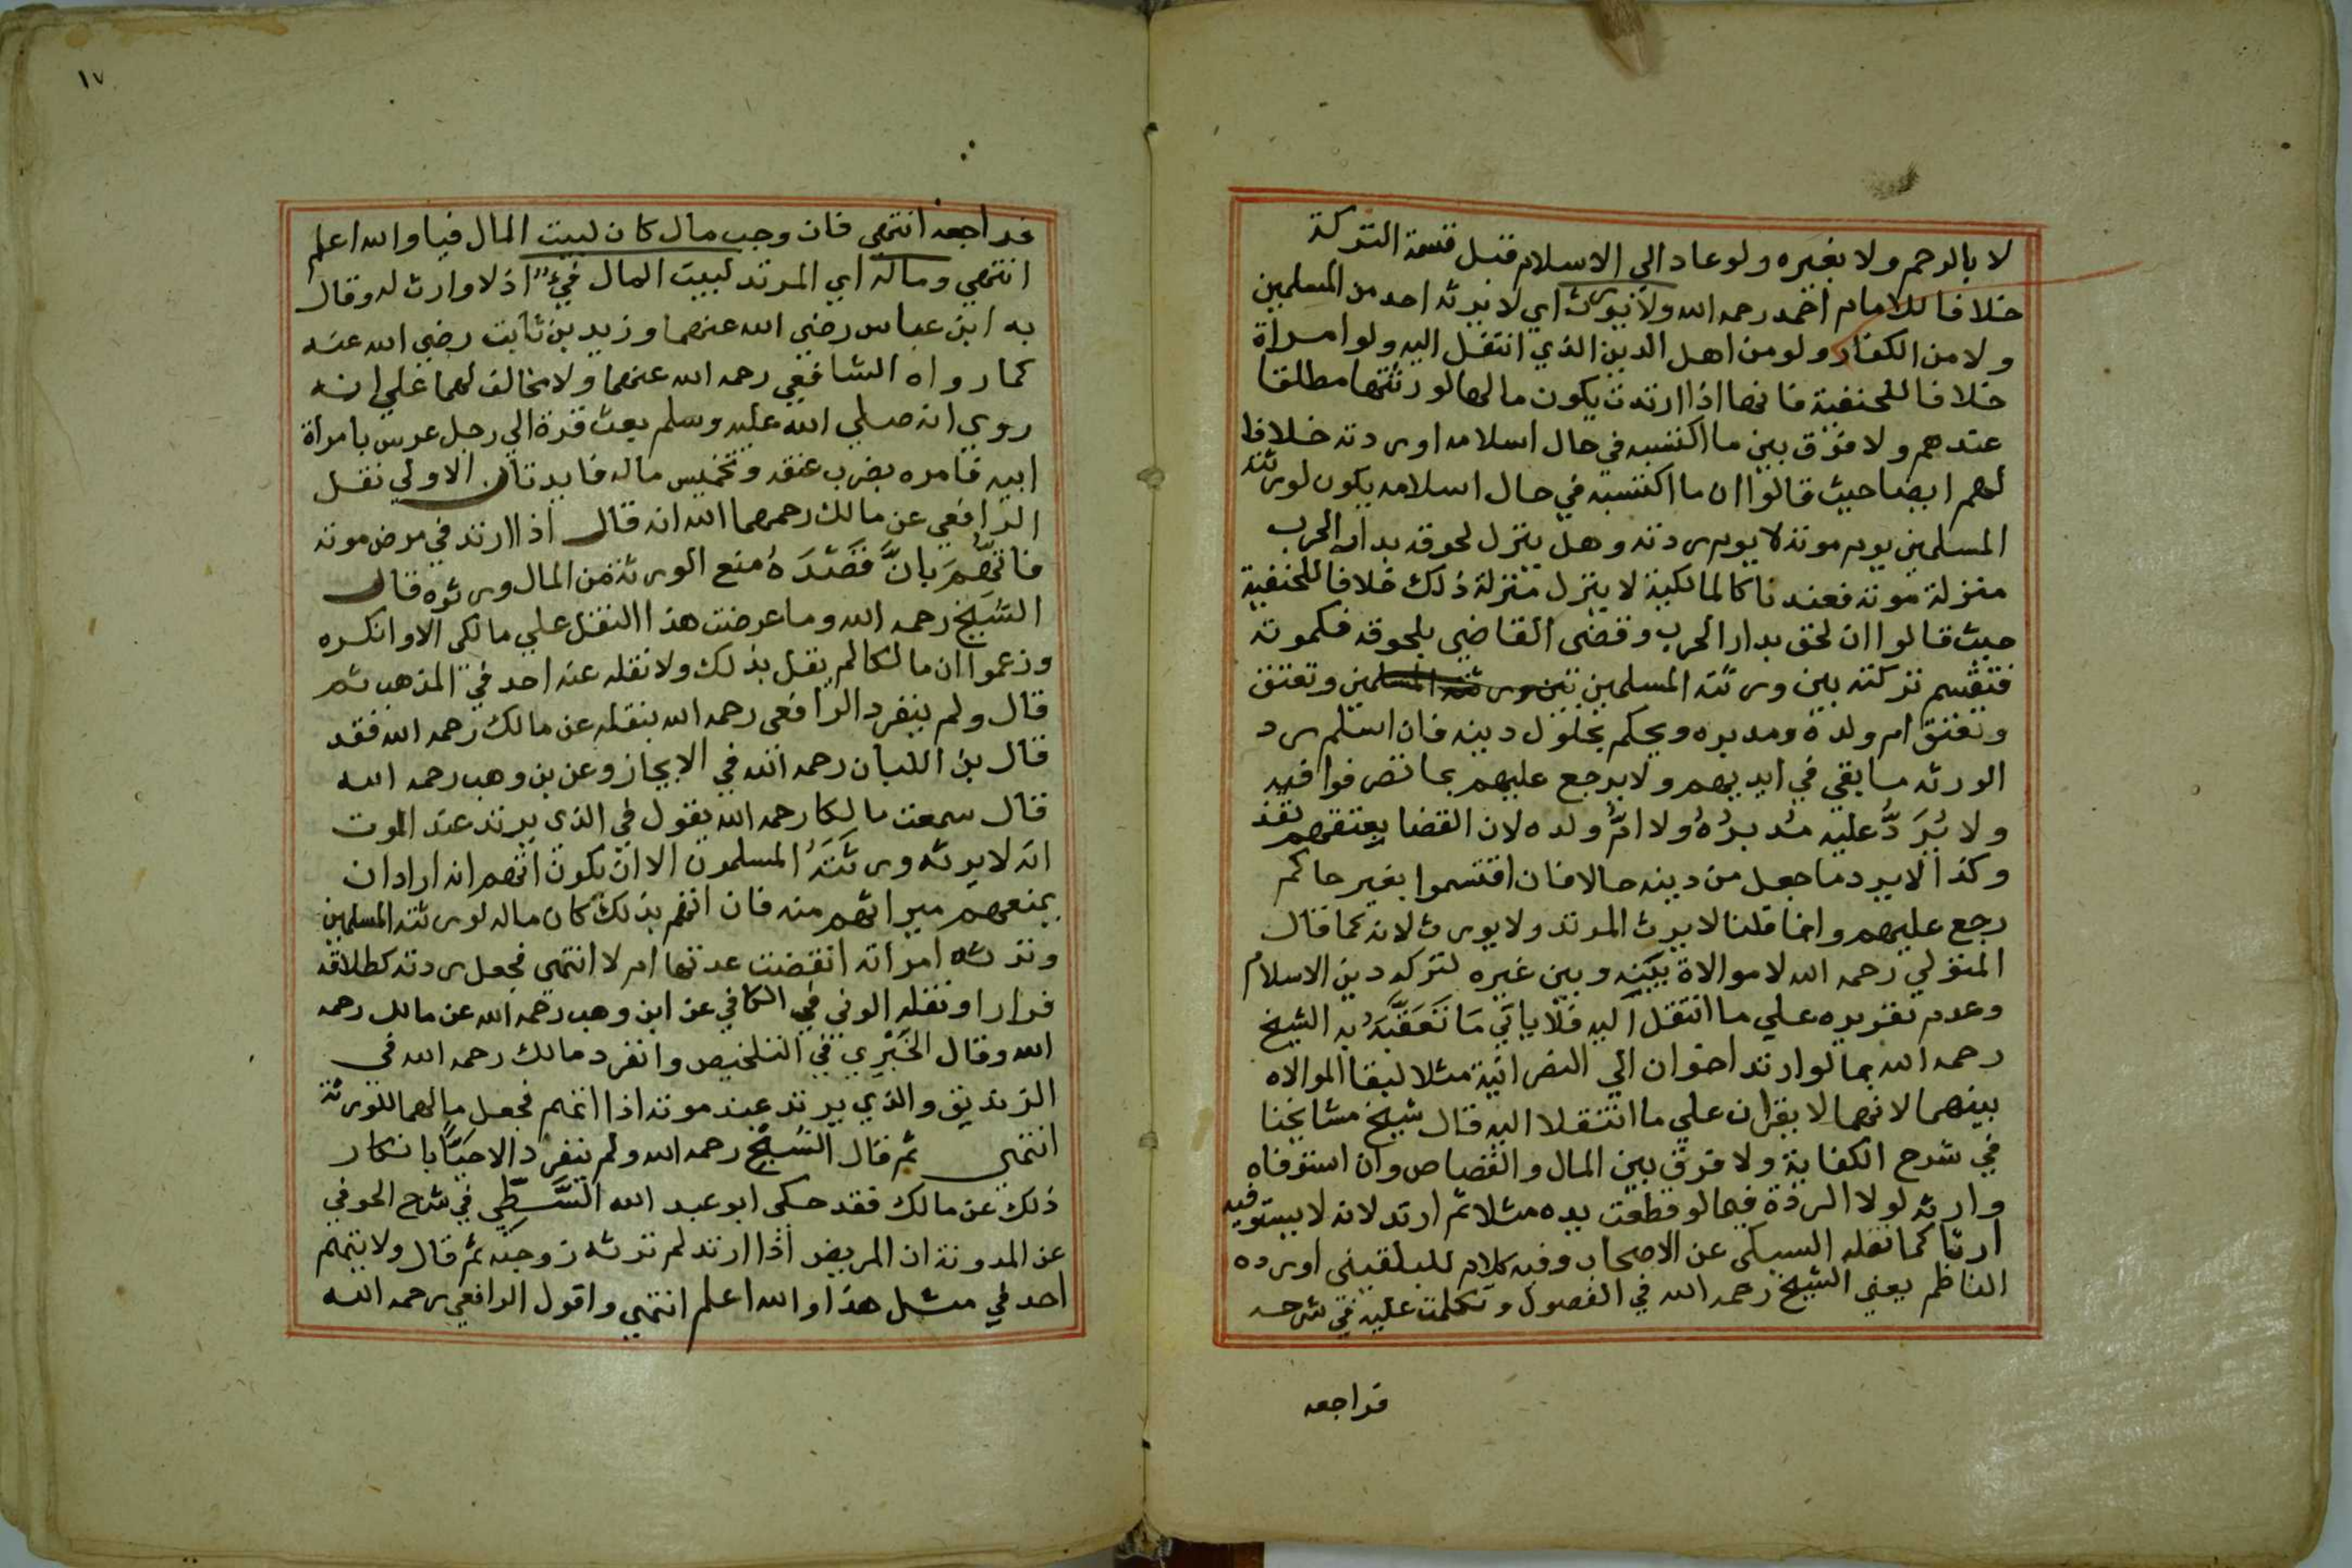 لا بالرحم ولا بغيره ولو عاد الي الاسلام قبل قسمة التركة
خلافا للامام احمد رحمه الله ولا يورث اي لا يرثه احد من المسلمين
ولا من الكفار ولو من اهل الدين الذي انتقل اليه ولو امراة
خلافا للحنفية فانها اذا ارتدت يكون مالها لورثتها مطلقا
عندهم ولا فرق بين ما اكتسبه في حال اسلامه او ردته خلافا
لهم ايضا حيث قالوا ان ما اكتسبه في حال اسلامه يكون لورثته
المسلمين يوم موته لا يوم ردته وهل ينزل لحوقه بدار الحرب
منزلة موته فعندنا كالمالكية لا ينزل منزلة ذلك خلافا للحنفية
حيث قالوا ان لحق بدار الحرب وقضى القاضي بلحوقه فكموته
فتقسم تركته بين ورثته المسلمين بين ورثته المسلمين وتعتق
وتعتق ام ولده ومدبره ويحكم بحلول دينه فان اسلم رد
الورثه ما بقي في ايديهم ولا يرجع عليهم بما تصرفوا فيه
ولا يُرَدُّ عليه مُدبرُهُ ولا امُّ ولده لان القضا بعتقهم نفذ
وكذا لا يرد ما جعل من دينه حالا فان اقتسموا بغير حاكم
رجع عليهم وانما قلنا لا يرث المرتد ولا يورث لانه كما قال
المتولي رحمه الله لا موالاة بينه وبين غيره لتركه دين الاسلام
وعدم تقريره علي ما انتقل اليه فلا ياتي مَا تَعَقَّبَهُ به الشيخ
رحمه الله بما لو ارتد اخوان الي النصرانية مثلا لبقا الموالاه
بينهما لانهما لا يقران علي ما انتقلا اليه قال شيخ مشايخنا
في شرح الكفاية ولا فرق بين المال والقصاص وان استوفاه
وارثه لولا الردة فيما لو قطعت يده مثلا ثم ارتد لانه لا يستوفيه
ارثا كما نقله السبكي عن الاصحاب وفيه كلام للبلقيني اورده
الناظم يعني الشيخ رحمه الله في الفصول وتكلمت عليه في شرحه
فراجعه
١٧
فراجعه انتهى فان وجب مال كان لبيت المال فيا والله اعلم
انتهي وماله اي المرتد لبيت المال فيءٌ اذ لا وارث له وقال
به ابن عباس رضي الله عنهما وزيد بن ثابت رضي الله عنه
كما رواه الشافعي رحمه الله عنهما ولا مخالف لهما علي انه
روي انه صلي الله عليه وسلم بعث قرة الي رجل عرس بامراة
ابيه فامره بضرب عنقه وتخميس ماله فايدتان الاولي نقل
الرافعي عن مالك رحمهما الله انه قال اذا ارتد في مرض موته
فاتُّهِمَ بانَّ قَصْدَهُ منع الورثة من المال ورثوه قال
الشيخ رحمه الله وما عرضت هذا النقل علي مالكى الا وانكره
وزعموا ان مالكا لم يقل بذلك ولا نقله عنه احد في المذهب ثم
قال ولم ينفرد الرافعى رحمه الله بنقله عن مالك رحمه الله فقد
قال بن اللبان رحمه الله في الايجاز وعن بن وهب رحمه الله
قال سمعت مالكا رحمه الله يقول في الذي يرتد عند الموت
انه لا يرثه ورثَتَهُ المسلمون الا ان يكون اتهم انه اراد ان
يمنعهم ميراثهم منه فان اتهم بذلك كان ماله لورثته المسلمين
وترثه امراته انقضت عدتها ام لا انتهي فجعل ردته كطلاقه
فرارا ونقله الوني في الكافي عن ابن وهب رحمه الله عن مالك رحمه
الله وقال الخَبْرِي في التلخيص وانفرد مالك رحمه الله في
الزنديق والذي يرتد عند موته اذا اتهم فجعل مالهما للورثة
انتهي ثم قال الشيخ رحمه الله ولم ننفرد بانكار
ذلك عن مالك فقد حكى ابو عبد الله السَّطِّي في شرح الحوفي
عن المدونة ان المريض اذا ارتد لم ترثه زوجته ثم قال ولا يتهم
احد في مثل هذا والله اعلم انتهي واقول الرافعي رحمه الله